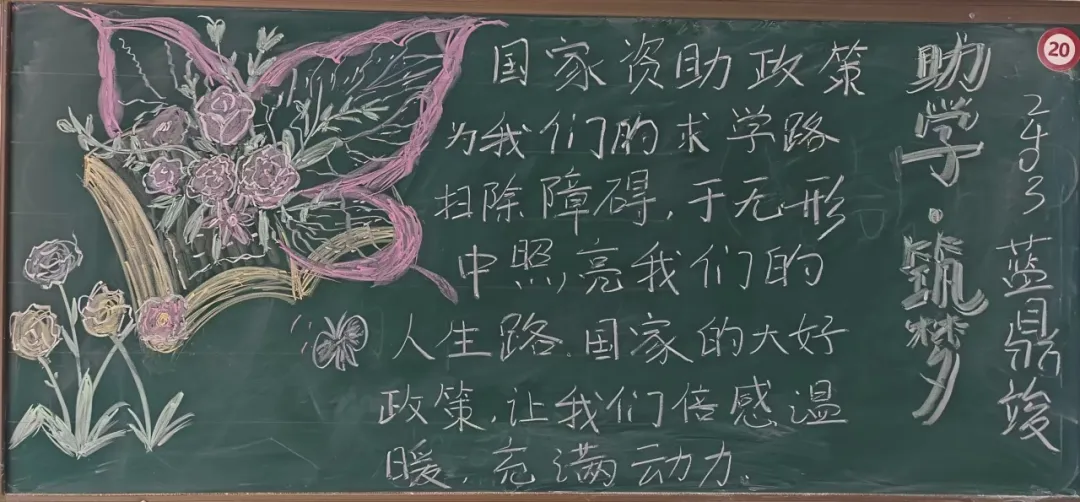 国家资助政策
为我们的求学路
扫除障碍,于无形
中照亮我们的
人生路.国家的大好
政策,让我们倍感温
暖,充满动力.
助学·筑梦
蓝鼎竣
20